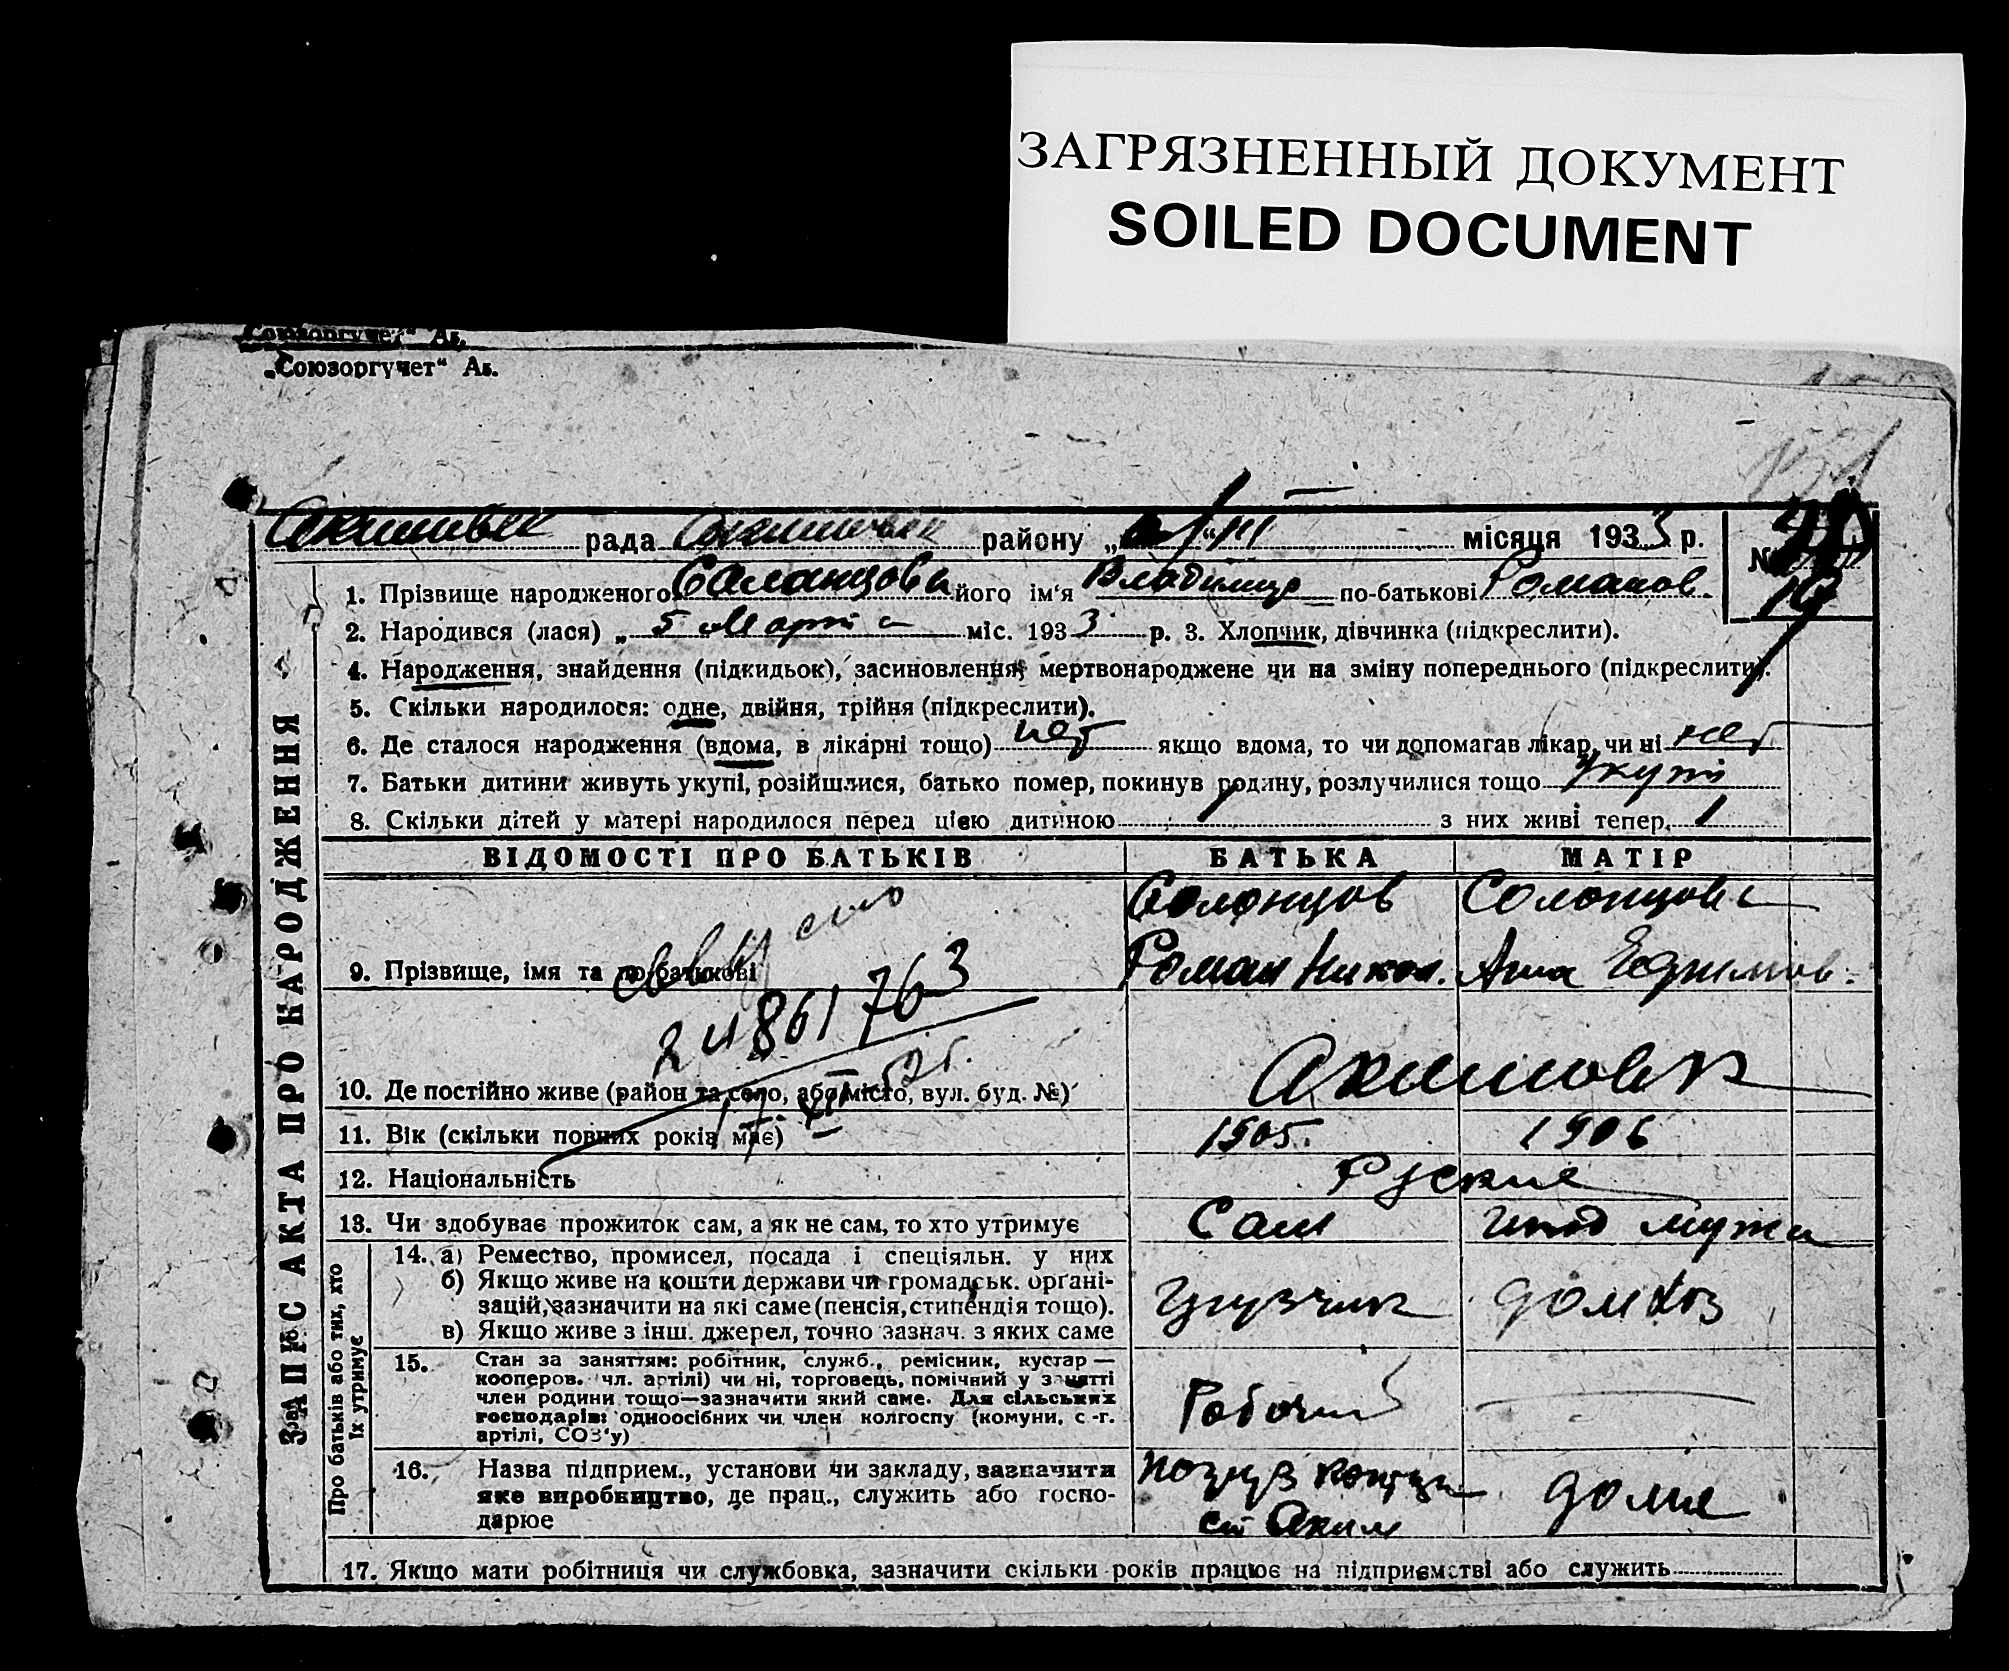 ЗАГРЯЗНЕННЫЙ ДОКУМЕНТ
SOILED DOCUMENT
„Союзоргучет“ Ав.
„Союзоргучет“ Ав.
рада району „ “ місяця 1933 р. №
19
1. Прізвище народженого його ім'я Владимир по-батькові Романов.
2. Народився (лася) „ 5 Марта міс. 1933 р. 3. Хлопчик, дівчинка (підкреслити).
4. Народження, знайдення (підкидьок), засиновлення, мертвонароджене чи на зміну попереднього (підкреслити).
5. Скільки народилося: одне, двійня, трійня (підкреслити).
6. Де сталося народження (вдома, в лікарні тощо) нет якщо вдома, то чи допомагав лікар, чи ні нет
7. Батьки дитини живуть укупі, розійшлися, батько помер, покинув родину, розлучилися тощо укупі
8. Скільки дітей у матері народилося перед цією дитиною 1 з них живі тепер 1
ЗАПИС АКТА ПРО НАРОДЖЕННЯ
ВІДОМОСТІ ПРО БАТЬКІВ БАТЬКА МАТІР
Солонцов Солонцова
9. Прізвище, імя та по-батькові Роман Никол. Анна Ефимов.
2486176
10. Де постійно живе (район та село, або місто, вул. буд. №)
11. Вік (скільки повних років має) 1905. 1906
12. Національність Руские
13. Чи здобуває прожиток сам, а як не сам, то хто утримує Сам мужа
Про батьків або тих, хто їх утримує
14. а) Ремество, промисел, посада і спеціяльн. у них
б) Якщо живе на кошти держави чи громадськ. організацій, зазначити на які саме (пенсія, стипендія тощо).
в) Якщо живе з інш. джерел, точно зазнач. з яких саме
грузчик домхоз
15. Стан за заняттям: робітник, служб., ремісник, кустар —
кооперов. чл. артілі) чи ні, торговець, помічний у занятті
член родини тощо—зазначити який саме. Для сільських
господарів: одноосібних чи член колгоспу (комуни, с.-г.
артілі, СОЗ'у)
Рабочий —
16. Назва підприєм., установи чи закладу, зазначити
яке виробництво, де прац., служить або госпо-
дарює
ст Аким дома
17. Якщо мати робітниця чи службовка, зазначити скільки років працює на підприємстві або служить